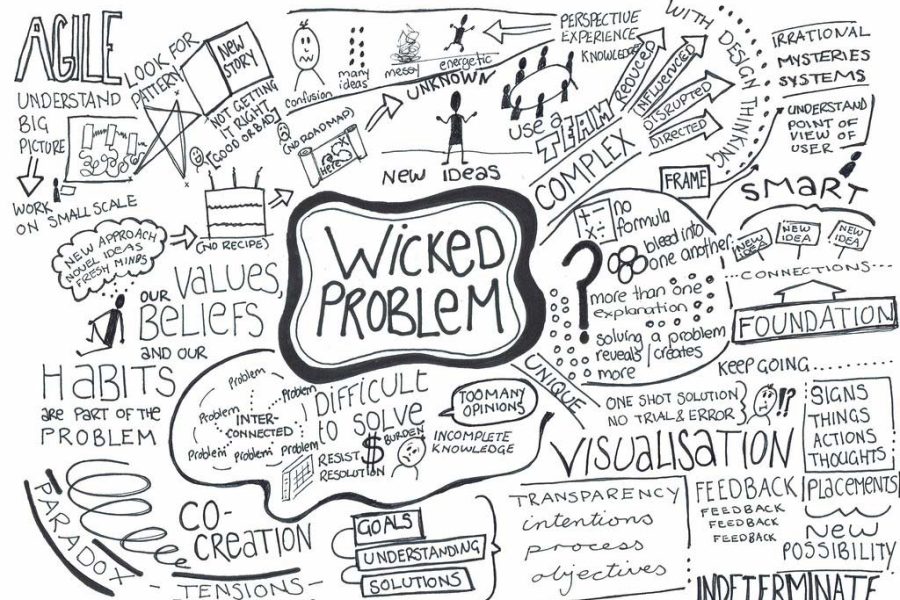 AGILE
UNDERSTAND
BIG
PICTURE
WORK
ON SMALL SCALE
LOOK FOR
PATTERN
NEW
STORY
NOT GETTING
IT RIGHT
(GOOD OR BAD)
confusion
many
ideas
messy
energetic
PERSPECTIVE
EXPERIENCE
KNOWLEDGE
UNKNOWN
(NO ROADMAP)
Here
NEW IDEAS
USE a
TEAM
COMPLEX
REDUCED
INFLUENCED
DISRUPTED
DIRECTED
WITH
DESIGN THINKING
IRRATIONAL
MYSTERIES
SYSTEMS
UNDERSTAND
POINT OF
VIEW OF
USER
FRAME
SMART
NEW
IDEA
NEW
IDEA
NEW
IDEA
CONNECTIONS
FOUNDATION
(NO RECIPE)
NEW APPROACH
NOVEL IDEAS
FRESH MINDS
OUR VALUES,
BELIEFS
AND OUR
HABITS
are PART OF THE
PROBLEM
WICKED
PROBLEM
no
formula
+ -
× ÷
?
bleed into
one another
more than one
explanation
solving a problem
reveals/creates
more
UNIQUE
KEEP GOING
ONE SHOT SOLUTION
NO TRIAL & ERROR
!?
SIGNS
THINGS
ACTIONS
THOUGHTS
PLACEMENTS
NEW
POSSIBILITY
Problem
Problem
Problem
Problem
Problem
Problem
INTER-
CONNECTED
DIFFICULT
TO SOLVE
RESIST
RESOLUTION
$
BURDEN
TOO MANY
OPINIONS
INCOMPLETE
KNOWLEDGE
VISUALISATION
FEEDBACK
FEEDBACK
FEEDBACK
FEEDBACK
TRANSPARENCY
intentions
process
objectives
INDETERMINATE
PARADOX
CO-
CREATION
TENSIONS
GOALS
UNDERSTANDING
SOLUTIONS